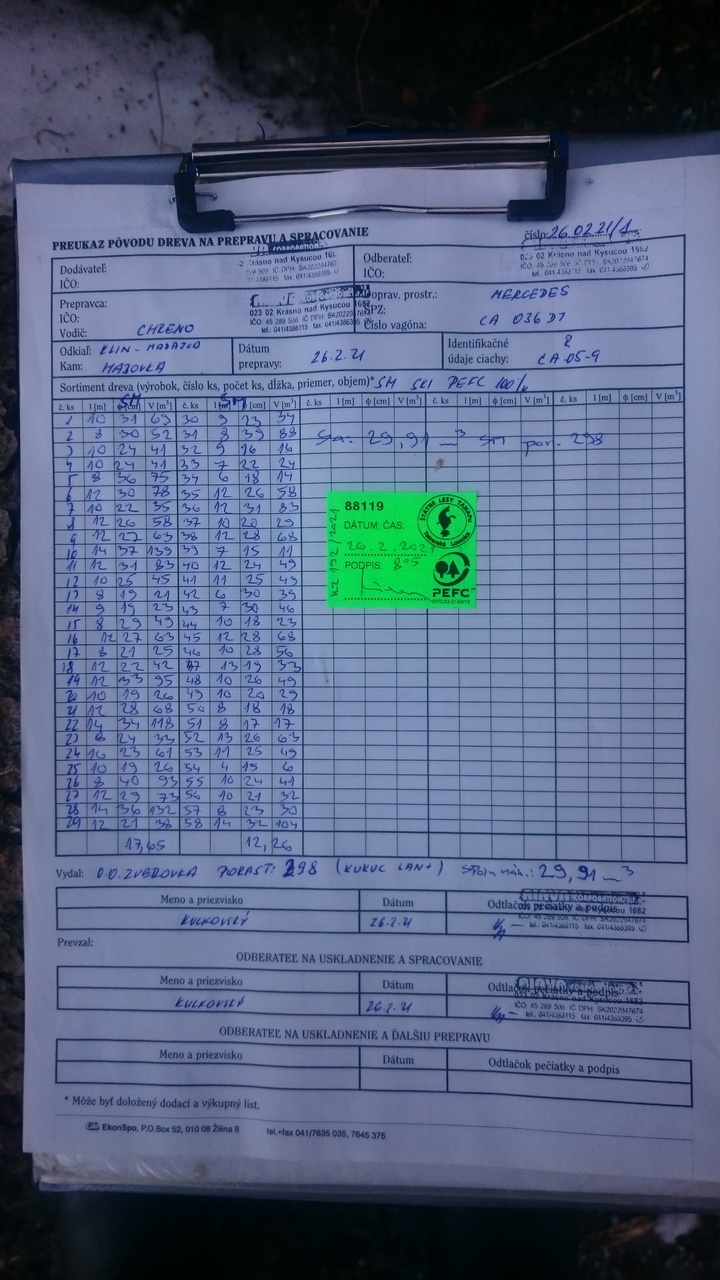 PREUKAZ PÔVODU DREVA NA PREPRAVU A SPRACOVANIE
číslo: 26.02.21/1
Dodávateľ:
IČO:
Krásno nad Kysucou
Odberateľ:
IČO:
023 02 Krásno nad Kysucou 1682
IČO: 45 289 506 IČ DPH: SK2022947674
tel.: 041/4386115 fax: 041/4386395
Prepravca:
IČO:
Vodič: CHRENO
023 02 Krásno nad Kysucou 1682
IČO: 45 289 506 IČ DPH: SK2022947674
tel.: 041/4386115 fax: 041/4386395
Doprav. prostr.: MERCEDES
ŠPZ:
Číslo vagóna: CA 036 DT
Odkiaľ: KLIN -
Kam: MAJOVKA
Dátum
prepravy: 26.2.21
Identifikačné 2
údaje ciachy: CA 05-9
Sortiment dreva (výrobok, číslo ks, počet ks, dĺžka, priemer, objem)* SM SKI PEFC 100%
SM SM
č. ks l [m] ϕ [cm] V [m³] č. ks l [m] ϕ [cm] V [m³] č. ks l [m] ϕ [cm] V [m³] č. ks l [m] ϕ [cm] V [m³]
1 10 31 69 30 9 23 34
2 8 30 52 31 8 39 88
Sa: 29,91 m³ SM por. 298
3 10 24 41 32 9 16 16
4 10 24 41 33 7 22 24
5 8 36 75 34 6 18 14
6 12 30 78 35 12 26 58
7 10 22 35 36 12 31 83
8 12 26 58 37 10 20 29
9 12 27 63 38 12 28 68
10 14 37 139 39 7 15 11
11 12 31 83 40 12 24 49
12 10 25 45 41 11 25 49
13 8 19 21 42 6 30 39
14 9 19 23 43 7 30 46
15 8 29 49 44 10 18 23
16 12 27 63 45 12 28 68
17 8 21 25 46 10 28 56
18 12 22 42 47 13 19 33
19 12 33 95 48 10 26 49
20 10 19 26 49 10 20 29
21 12 28 68 50 8 18 18
22 14 34 118 51 8 17 17
23 8 24 33 52 13 26 63
24 16 23 61 53 11 25 49
25 10 19 26 54 4 15 6
26 8 40 93 55 10 24 41
27 12 29 73 56 10 21 32
28 14 36 132 57 8 23 30
29 12 21 38 58 14 32 104
17,65 12,26
88119
DÁTUM; ČAS:
26.2.2021
PODPIS: 805
192/2021
ŠTÁTNE LESY TANAPU
Tatranská Lomnica
PEFC
Vydal: O.O. ZVEROVKA PORAST: 298 (KUKUC LANT) Spolu nák.: 29,91 m³
Meno a priezvisko Dátum Odtlačok pečiatky a podpis
KULKOVSKÝ 26.2.21
Krásno nad Kysucou 1682
IČO: 45 289 506 IČ DPH: SK2022947674
tel.: 041/4386115 fax: 041/4386395
Prevzal:
ODBERATEĽ NA USKLADNENIE A SPRACOVANIE
Meno a priezvisko Dátum Odtlačok pečiatky a podpis
KULKOVSKÝ 26.2.21
Krásno nad Kysucou 1682
IČO: 45 289 506 IČ DPH: SK2022947674
tel.: 041/4386115 fax: 041/4386395
ODBERATEĽ NA USKLADNENIE A ĎALŠIU PREPRAVU
Meno a priezvisko Dátum Odtlačok pečiatky a podpis
* Môže byť doložený dodací a výkupný list.
EkonSpo, P.O.Box 52, 010 08 Žilina 8 tel.+fax 041/7635 035, 7645 375